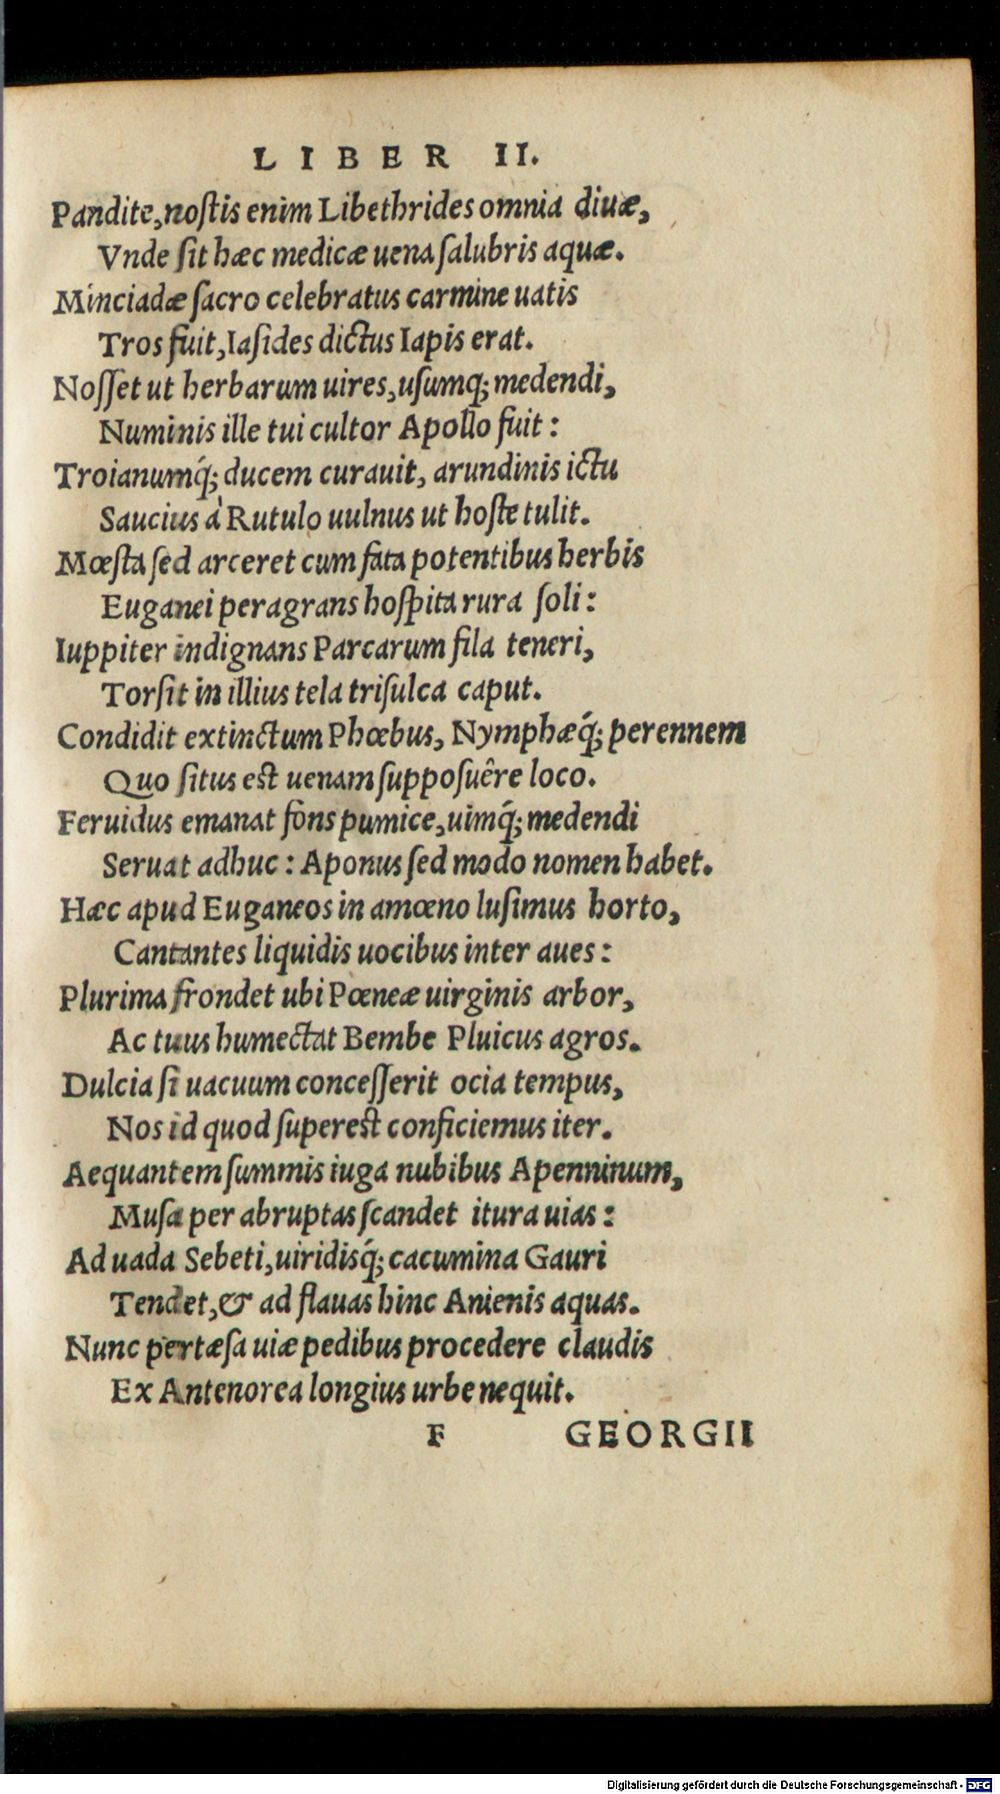 LIBER II.
Pandite, nostis enim Libethrides omnia diuæ,
Vnde sit hæc medicæ uena salubris aquæ.
Minciadæ sacro celebratus carmine uatis
Tros fuit, Iasides dictus Iapis erat.
Nosset ut herbarum uires, usumq́; medendi,
Numinis ille tui cultor Apollo fuit:
Troianumq́; ducem curauit, arundinis ictu
Saucius à Rutulo uulnus ut hoste tulit.
Mœsta sed arceret cum fata potentibus herbis
Euganei peragrans hospita rura soli:
Iuppiter indignans Parcarum fila teneri,
Torsit in illius tela trisulca caput.
Condidit extinctum Phœbus, Nymphæq́; perennem
Quo situs est uenam supposuêre loco.
Feruidus emanat fons pumice, uimq́; medendi
Seruat adhuc: Aponus sed modo nomen habet.
Hæc apud Euganeos in amœno lusimus horto,
Cantantes liquidis uocibus inter aues:
Plurima frondet ubi Pœneæ uirginis arbor,
Ac tuus humectat Bembe Pluicus agros.
Dulcia si uacuum concesserit ocia tempus,
Nos id quod superest conficiemus iter.
Aequantem summis iuga nubibus Apenninum,
Musa per abruptas scandet itura uias:
Ad uada Sebeti, uiridisq́; cacumina Gauri
Tendet, & ad flauas hinc Anienis aquas.
Nunc pertæsa uiæ pedibus procedere claudis
Ex Antenorea longius urbe nequit.
F GEORGII
Digitalisierung gefördert durch die Deutsche Forschungsgemeinschaft - DFG